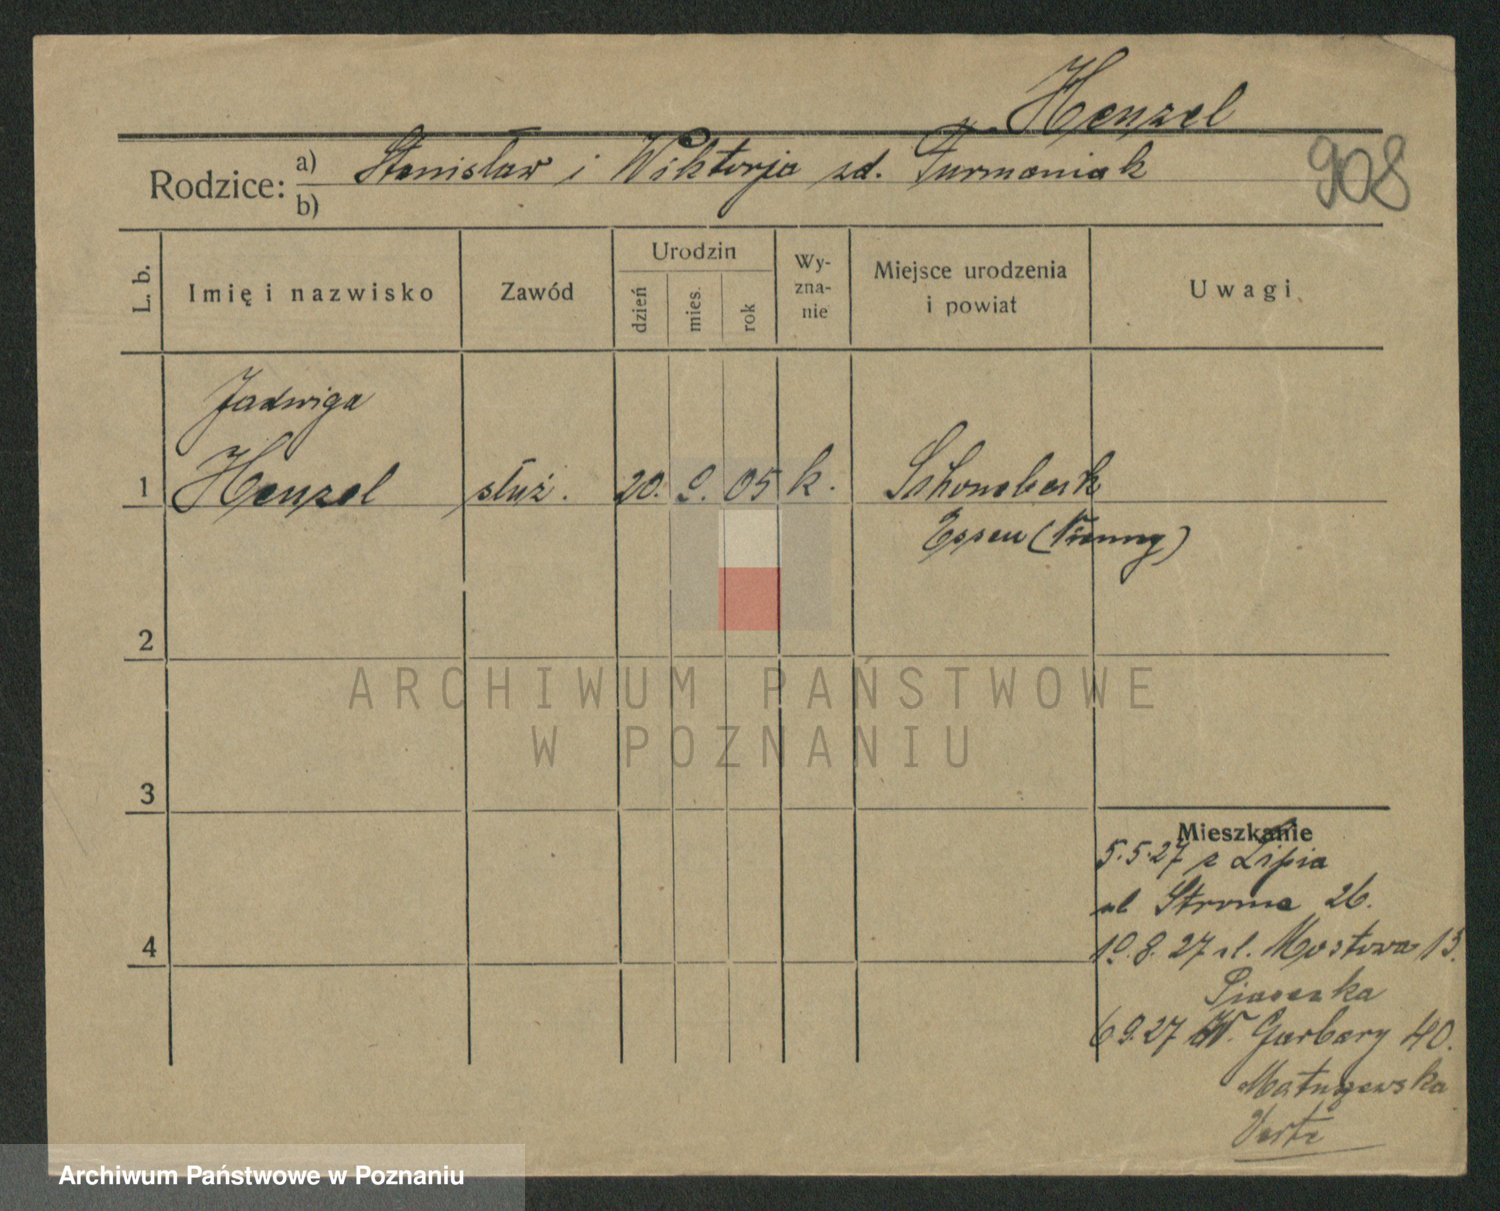 Henzel
Rodzice: a) Stanisław i Wiktorja zd. Furmaniak
b)
908
L. b. Imię i nazwisko Zawód Urodzin dzień mies. rok Wy-zna-nie Miejsce urodzenia i powiat Uwagi
Jadwiga
1 Henzel służ. 20. 9. 05 k. Schonebeck
Essen (Niemcy)
2
ARCHIWUM PAŃSTWOWE
W POZNANIU
3
Mieszkanie
5.5.27 z Lipia
ul Stroma 26.
4
10.8.27 ul. Mostowa 13.
Piasecka
6 9.27 W. Garbary 40.
Matuszewska
Verte
Archiwum Państwowe w Poznaniu